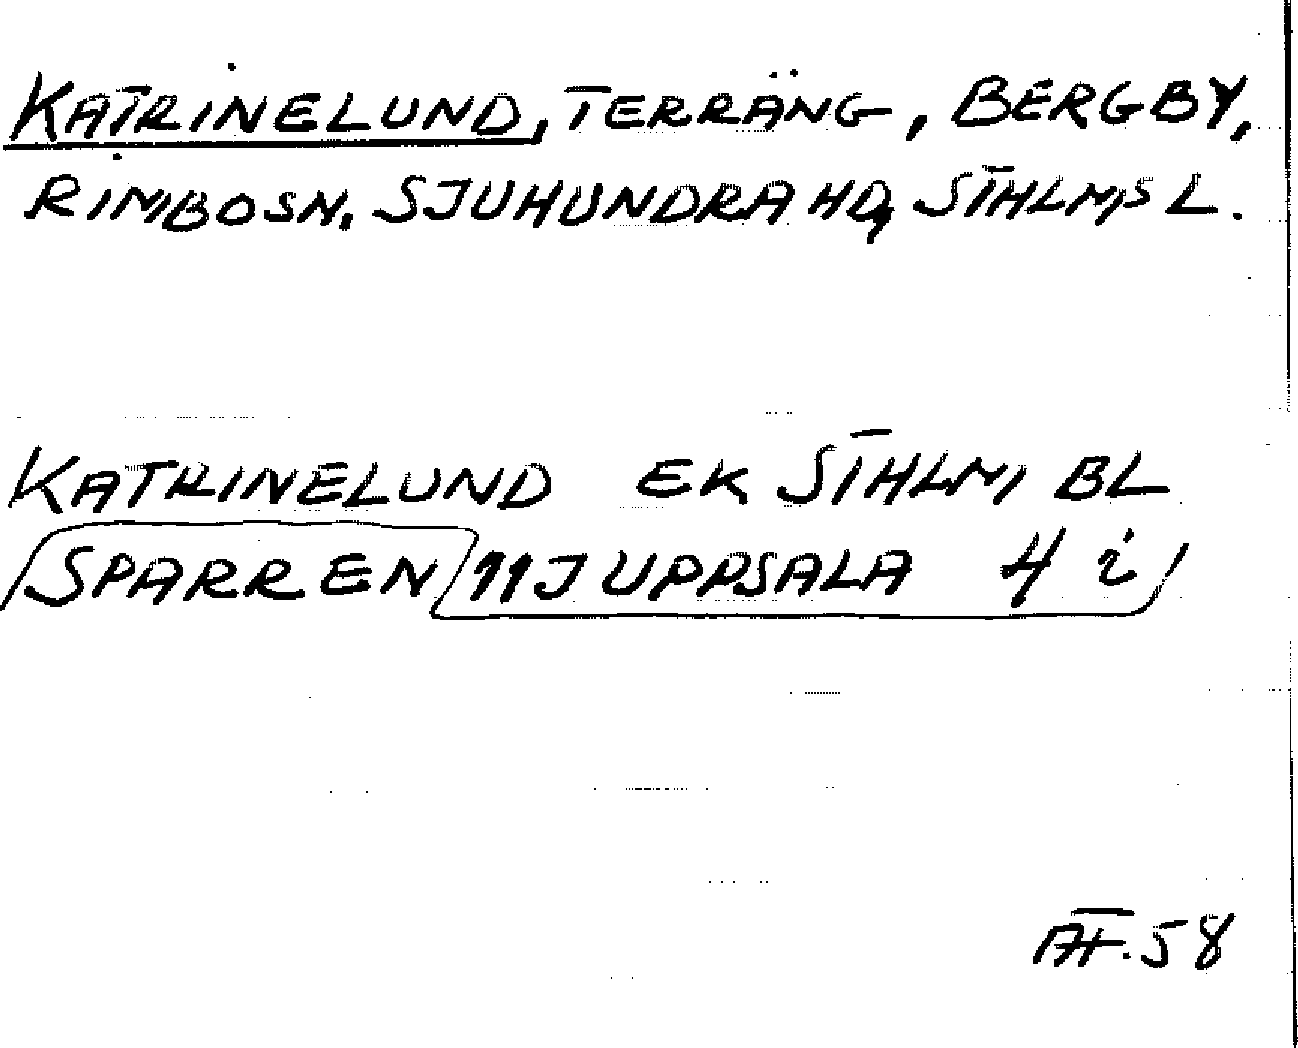 KATRINELUND, TERRÄNG, BERGBY,
RIMBOSN. SJUHUNDRA HD, STHLM,S L.
KATRINELUND EK STHLM BL
SPARREN 11J UPPSALA 4 i
AF.58